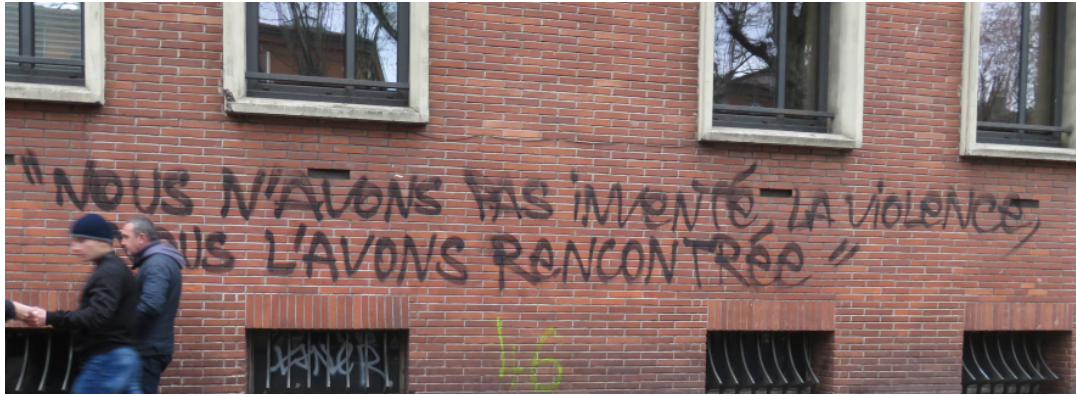 "NOUS N'AVONS PAS iNVENTÉ LA ViOLENCE,
NOUS L'AVONS RENCONTRÉE"
46